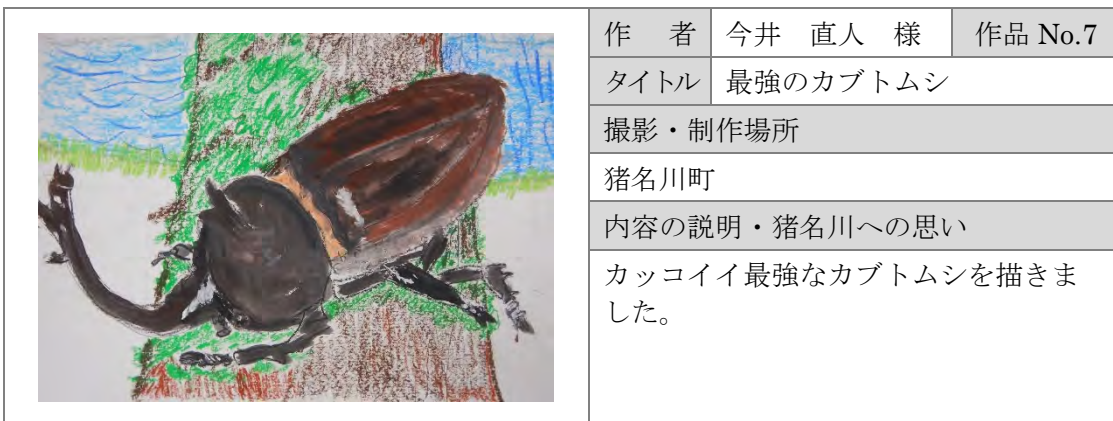 作　者 今井　直人　様 作品 No.7
タイトル 最強のカブトムシ
撮影・制作場所
猪名川町
内容の説明・猪名川への思い
カッコイイ最強なカブトムシを描きま
した。